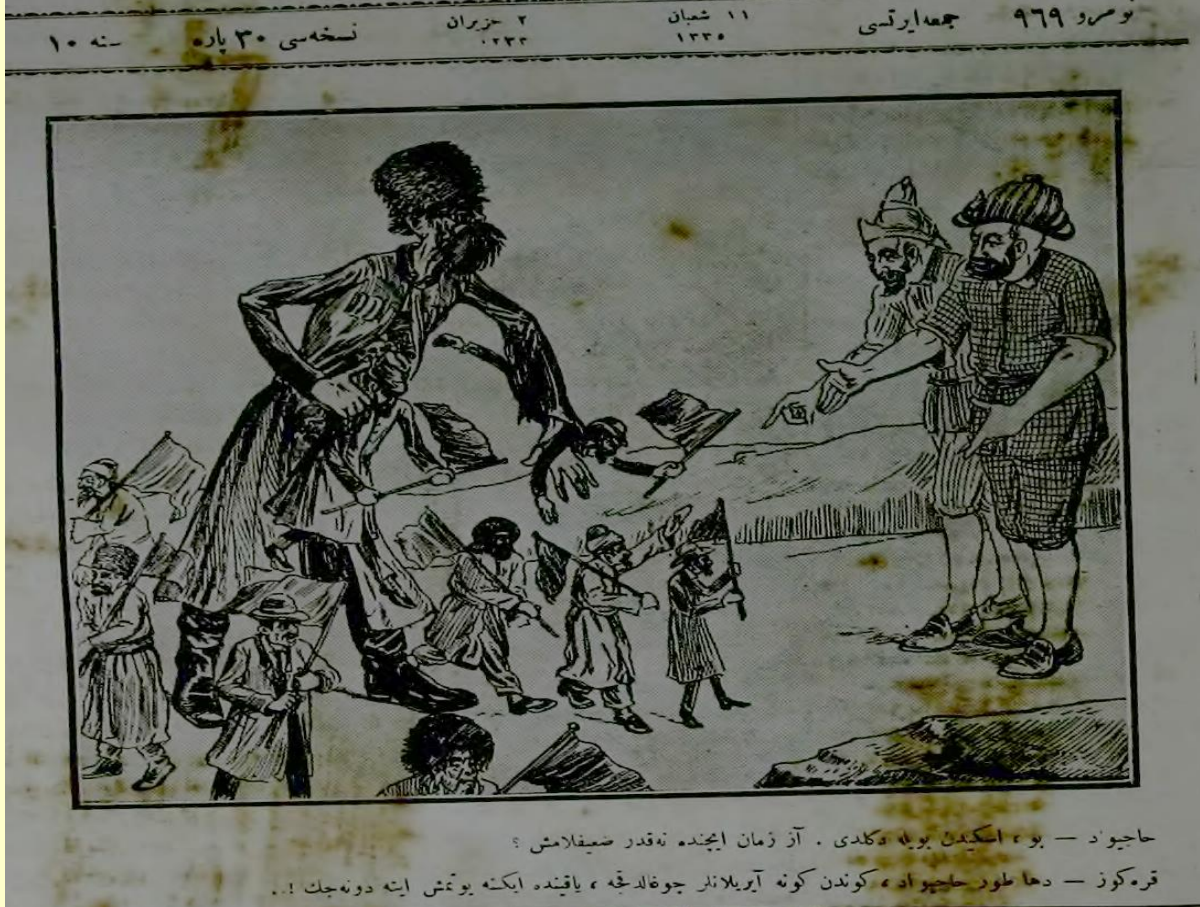 نومرو ٩٦٩ جمعه‌ایرتسی ١١ شعبان ١٣٣٥ ٢ حزیران ١٣٣٣ نسخه‌سی ٣٠ پاره سنه ١٠
حاجیواد — بو ، اسکیدن بویله دکلدی . آز زمان ایچنده نه‌قدر ضعیفلامش ؟
قره‌کوز — دها طور حاجیواد ، کوندن کونه آیریلانلر چوغالدقجه ، یاقینده ایکنه یوتمش ایته دونه‌جك !..